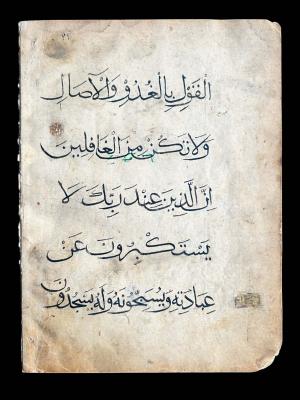 الْقَوْلِ بِالْغُدُوِّ وَالْآصَالِ
وَلَا تَكُنْ مِنَ الْغَافِلِينَ
اِنَّ الَّذِينَ عِنْدَ رَبِّكَ لَا
يَسْتَكْبِرُونَ عَنْ
عِبَادَتِهِ وَيُسَبِّحُونَهُ وَلَهُ يَسْجُدُونَ